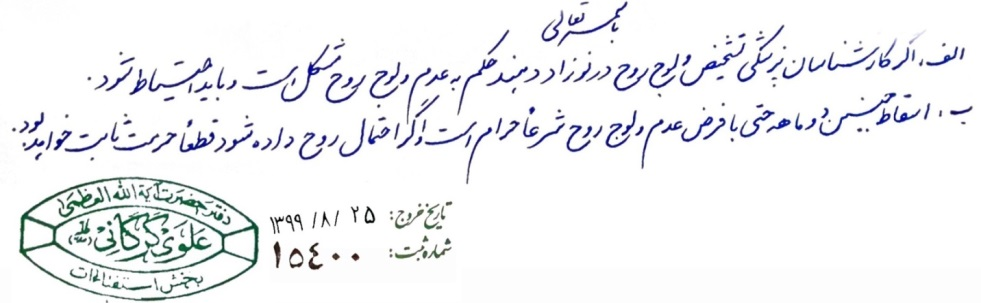 باسمه تعالی
الف. اگر کارشناسان پزشکی تشخیص ولوج روح در نوزاد دهند حکم به عدم ولوج روح مشکل است و باید احتیاط شود.
ب. اسقاط جنین دو ماهه حتی با فرض عدم ولوج روح شرعاً حرام است و اگر احتمال روح داده شود قطعاً حرمت ثابت خواهد بود.
دفتر حضرت آیة الله العظمی
علوی گرگانی
بخش استفتائات
تاریخ خروج: ۱۳۹۹/۸/۲۵
شماره ثبت: ۱۵۴۰۰